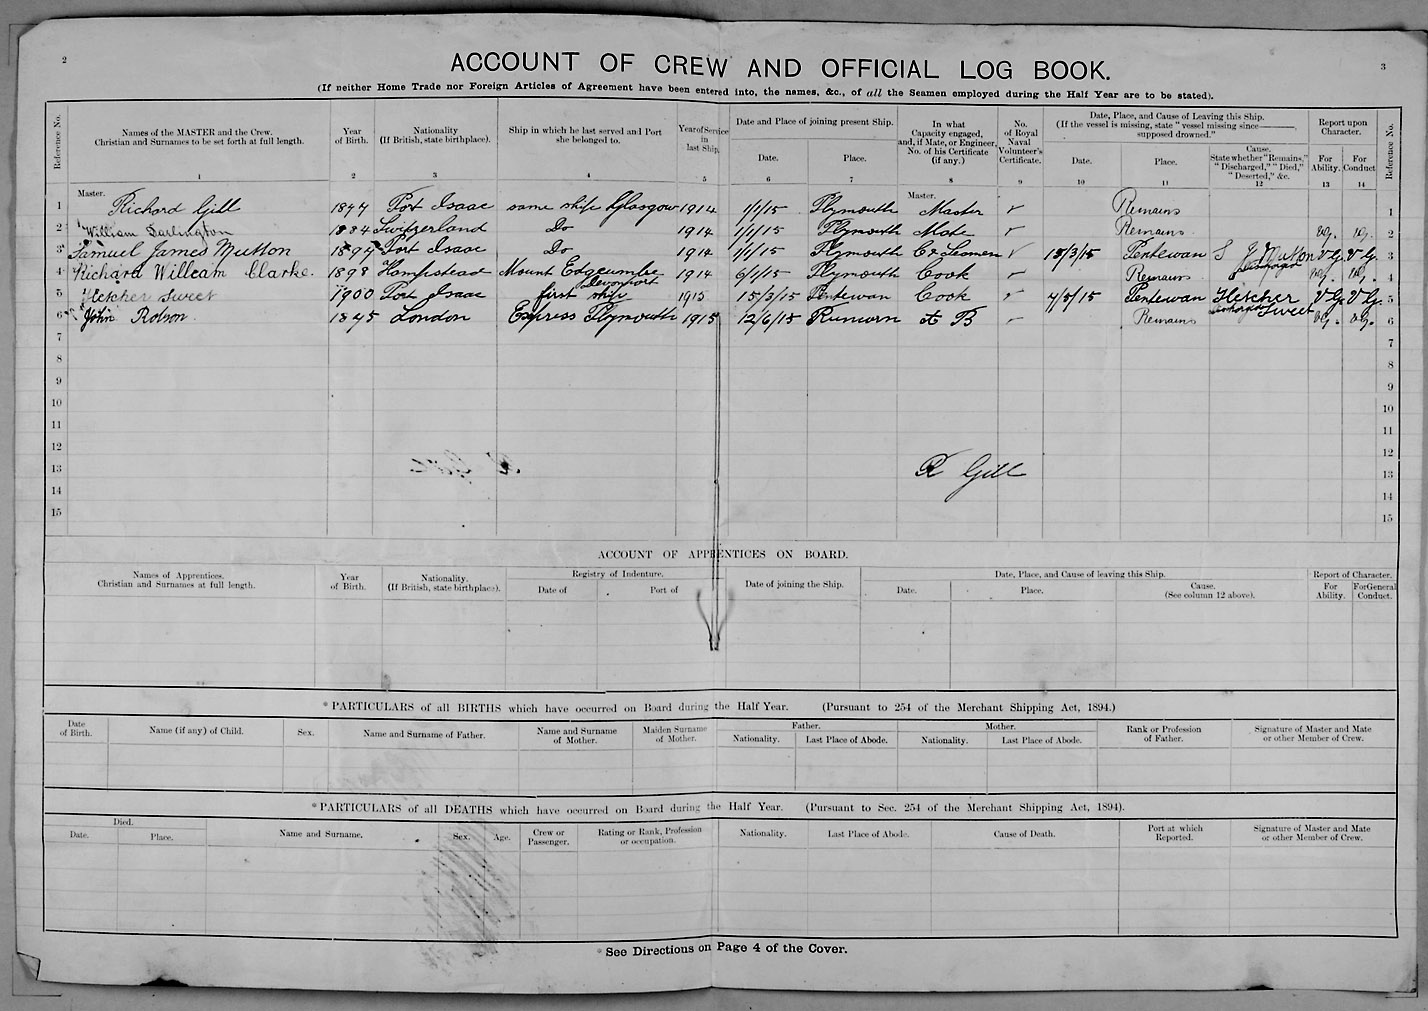 2
3
ACCOUNT OF CREW AND OFFICIAL LOG BOOK.
(If neither Home Trade nor Foreign Articles of Agreement have been entered into, the names, &c., of all the Seamen employed during the Half Year are to be stated).
Reference No.
Names of the MASTER and the Crew. Christian and Surnames to be set forth at full length.
Year of Birth.
Nationality (If British, state birthplace).
Ship in which he last served and Port she belonged to.
Year of Service in last Ship.
Date and Place of joining present Ship.
Date. Place.
In what Capacity engaged, and, if Mate, or Engineer, No. of his Certificate (if any.)
No. of Royal Naval Volunteer's Certificate.
Date, Place, and Cause of Leaving this Ship. (If the vessel is missing, state "vessel missing since———, supposed drowned."
Date. Place.
Cause. State whether "Remains," "Discharged," "Died," "Deserted," &c.
Report upon Character.
For Ability. For Conduct
Reference No.
1 2 3 4 5 6 7 8 9 10 11 12 13 14
Master. Master.
1 Richard Gill 1877 Port Isaac same ship Glasgow 1914 1/1/15 Plymouth Master Remains 1
2 William Darlington 1884 Switzerland Do 1914 1/1/15 Plymouth Mate Remains VG. VG. 2
3 Samuel James Mutton 1897 Port Isaac Do 1914 1/1/15 Plymouth Seaman 18/3/15 Pentewan S J Mutton Discharged V.G. V.G. 3
4 Richard William Clarke. 1898 Hampstead Mount Edgcumbe Devonport 1914 6/1/15 Plymouth Cook Remains VG. VG. 4
5 Fletcher Sweet 1900 Port Isaac first ship 1915 15/3/15 Pentewan Cook Pentewan Fletcher Sweet Discharged V.G. V.G. 5
6 John Robson. 1875 London Express Plymouth 1915 12/6/15 Runcorn A B Remains VG. VG. 6
7 7
8 8
9 9
10 10
11 11
12 12
13 R Gill 13
14 14
15 15
ACCOUNT OF APPRENTICES ON BOARD.
Names of Apprentices. Christian and Surnames at full length.
Year of Birth.
Nationality. (If British, state birthplace).
Registry of Indenture.
Date of Port of
Date of joining the Ship.
Date, Place, and Cause of leaving this Ship.
Date. Place. Cause. (See column 12 above).
Report of Character.
For Ability. For General Conduct.
*PARTICULARS of all BIRTHS which have occurred on Board during the Half Year. (Pursuant to 254 of the Merchant Shipping Act, 1894.)
Date of Birth.
Name (if any) of Child.
Sex.
Name and Surname of Father.
Name and Surname of Mother.
Maiden Surname of Mother.
Father.
Nationality. Last Place of Abode.
Mother.
Nationality. Last Place of Abode.
Rank or Profession of Father.
Signature of Master and Mate or other Member of Crew.
*PARTICULARS of all DEATHS which have occurred on Board during the Half Year. (Pursuant to Sec. 254 of the Merchant Shipping Act, 1894).
Died.
Date. Place.
Name and Surname.
Sex.
Age.
Crew or Passenger.
Rating or Rank, Profession or occupation.
Nationality.
Last Place of Abode.
Cause of Death.
Port at which Reported.
Signature of Master and Mate or other Member of Crew.
*See Directions on Page 4 of the Cover.